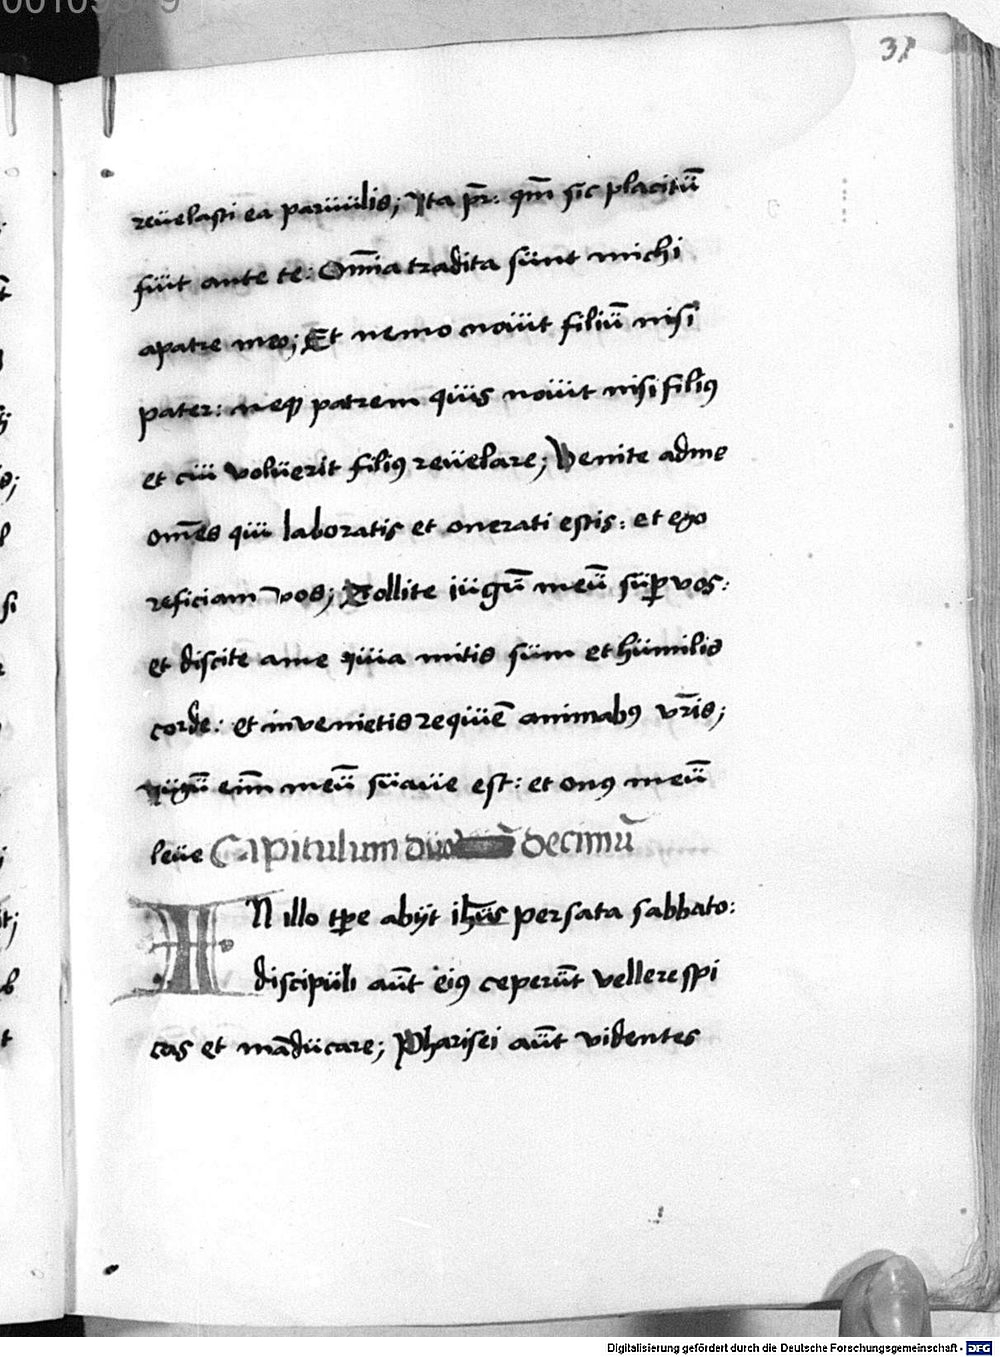 31
reüelasti ea parüülis; Ita pr̄: qm̄ sic placitū
füit ante te: Om̄ia tradita sünt michi
apatre meo; Et nemo noüit filiū nisi
pater: neqꝫ patrem qüis noüit nisi filiꝰ
et cüi volüerit filiꝰ reüelare; Venite adme
om̄es qüi laboratis et onerati estis: et ego
reficiam vos; Tollite iügū meū süꝑ vos:
et discite ame qüia mitis süm et hümilis
corde: et invenietis reqüiē animabꝰ vr̄is;
iügū eim̄ meū süaüe est: et onꝰ meū
leüe Capitulum düo decimū
IN illo tꝑe abijt ihüs̄ per sata sabbato:
discipüli aüt̄ eiꝰ ceperüt̄ vellere spi
cas et mādücare; Pharisei aüt̄ videntes
Digitalisierung gefördert durch die Deutsche Forschungsgemeinschaft - DFG